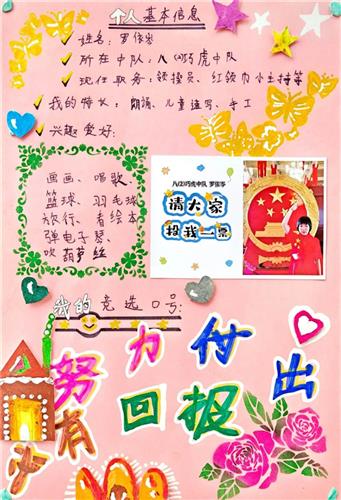 个人基本信息
✓ 姓名: 罗依岑
✓ 所在中队: 八(2)巧虎中队
✓ 现任职务: 领操员、红领巾小主持等
✓ 我的特长: 朗诵、儿童速写、手工
✓ 兴趣爱好:
画画、唱歌、
篮球、羽毛球
旅行、看绘本
弹电子琴、
吹葫芦丝
八(2)巧虎中队 罗依岑
请大家
投我一票
我的竞选口号:
努力付出
才有回报